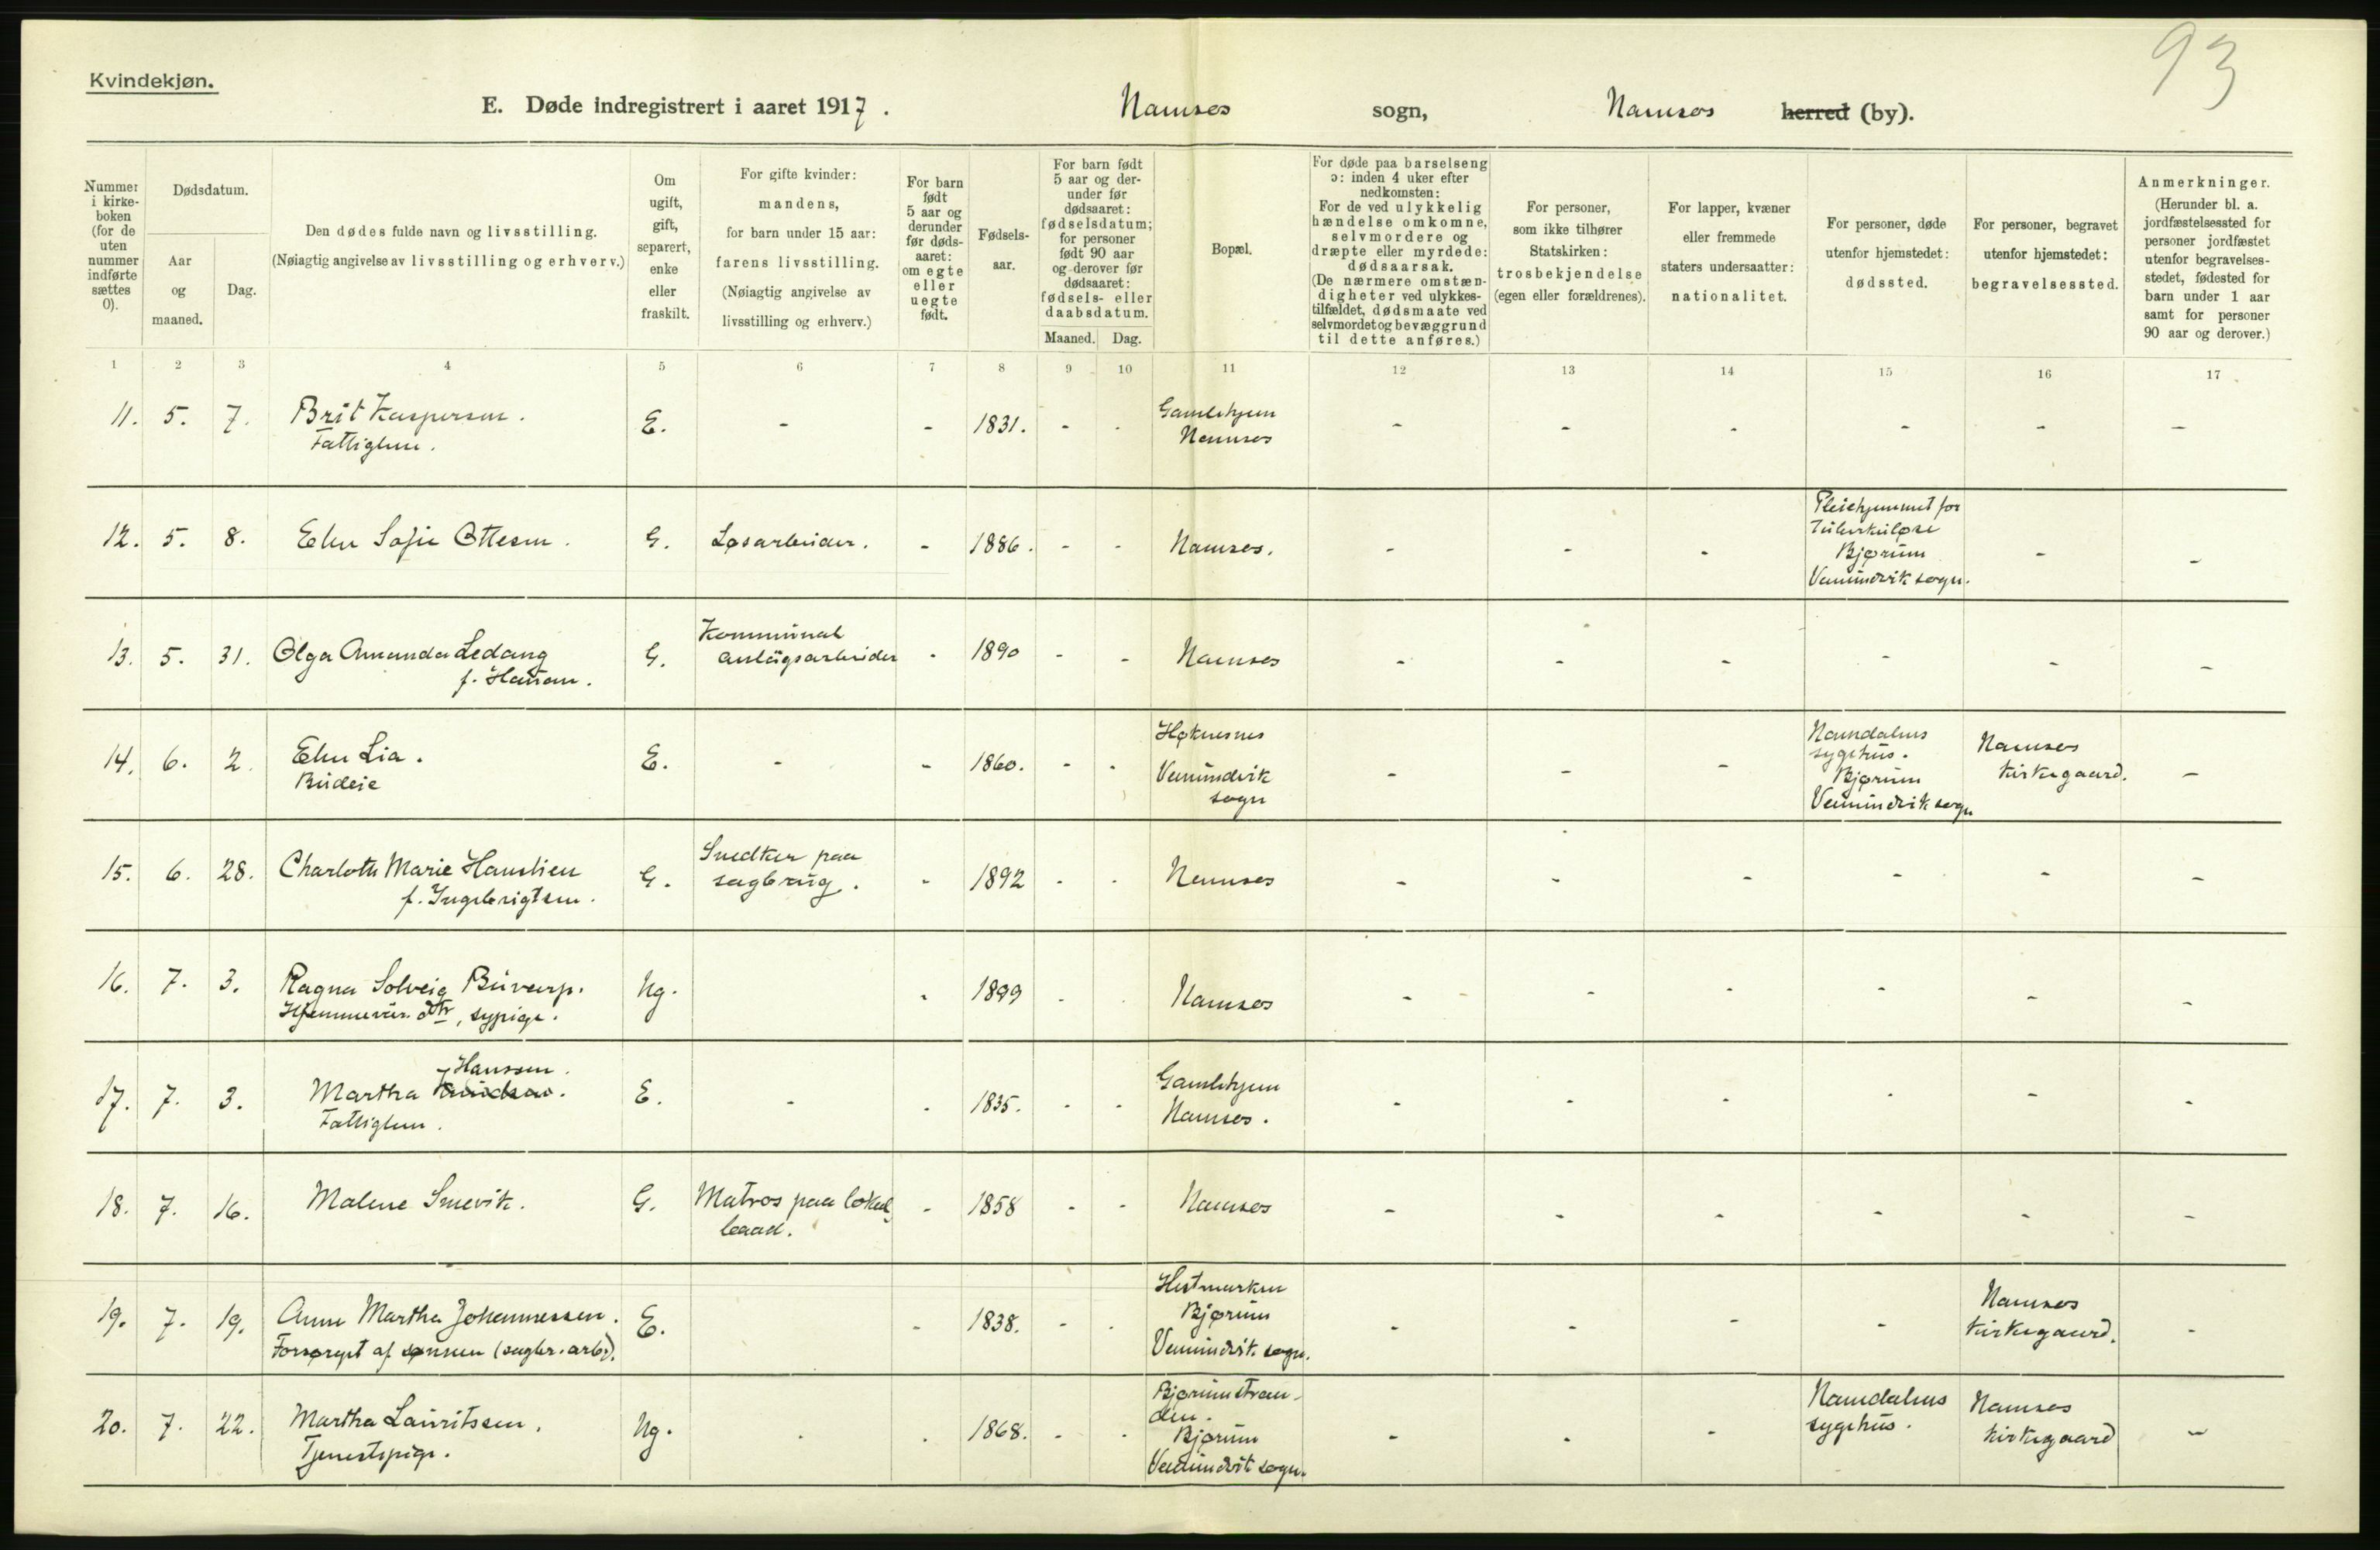 93
Kvindekjøn.
E. Døde indregistrert i aaret 1917. Namsos sogn, Namsos herred (by).
Nummer i kirke-boken (for de uten nummer indførte sættes 0).
Dødsdatum.
Aar og maaned.
Dag.
Den dødes fulde navn og livsstilling.
(Nøiagtig angivelse av livsstilling og erhverv.)
Om ugift, gift, separert, enke eller fraskilt.
For gifte kvinder: mandens, for barn under 15 aar: farens livsstilling. (Nøiagtig angivelse av livsstilling og erhverv.)
For barn født 5 aar og derunder før døds-aaret: om egte eller uegte født.
Fødsels-aar.
For barn født 5 aar og der-under før dødsaaret: fødselsdatum; for personer født 90 aar og derover før dødsaaret: fødsels- eller daabsdatum.
Maaned. Dag.
Bopæl.
For døde paa barselseng ɔ: inden 4 uker efter nedkomsten: For de ved ulykkelig hændelse omkomne, selvmordere og dræpte eller myrdede: dødsaarsak. (De nærmere omstæn-digheter ved ulykkes-tilfældet, dødsmaate ved selvmordet og bevæggrund til dette anføres.)
For personer, som ikke tilhører Statskirken: trosbekjendelse (egen eller forældrenes).
For lapper, kvæner eller fremmede staters undersaatter: nationalitet.
For personer, døde utenfor hjemstedet: dødssted.
For personer, begravet utenfor hjemstedet: begravelsessted.
Anmerkninger. (Herunder bl. a. jordfæstelsessted for personer jordfæstet utenfor begravelses-stedet, fødested for barn under 1 aar samt for personer 90 aar og derover.)
1 2 3 4 5 6 7 8 9 10 11 12 13 14 15 16 17
11. 5. 7. Brit Kaspersen. E. - - 1831. - - Gamlehjem - - - - - -
Fattiglem. Namsos
12. 5. 8. Elen Sofie Ottesen. G. Løsarbeider. - 1886. - - Namsos. - - - Pleiehjemmet for - -
Tuberkuløse
Bjørum
Vemundvik sogn.
13. 5. 31. Olga Amanda Ledang G. Kommunal - 1890 - - Namsos - - - - - -
f. Hansen. anlægsarbeider
14. 6. 2. Elen Lia. E. - - 1860. - - Høknesnes - - - Namdalens Namsos -
Budeie Vemundvik sygehus. kirkegaard.
sogn Bjørum
Vemundvik sogn
15. 6. 28. Charlotte Marie Hanslien G. Snedker paa - 1892 - - Namsos - - - - - -
f. Ingebrigtsen. sagbrug.
16. 7. 3. Ragna Solveig Buvarp. Ug. - 1899 - Namsos - - - - - -
Hjemmevær. dtr, sypige.
17. 7. 3. Martha Hanssen. E. - - 1835. - - Gamlehjem - - - - - -
Fattiglem. Namsos.
18. 7. 16. Malene Smevik. G. Matros paa lokal- - 1858 - - Namsos - - - - - -
baad.
19. 7. 19. Anne Martha Johannessen. E. - 1838. - - Hestmarken - - - - Namsos -
Forsørget af sønnen (sagbr.arb.). Bjørum kirkegaard.
Vemundvik sogn.
20. 7. 22. Martha Lauritssen. Ug. - - 1868. - - Bjørumstran- - - - Namdalens Namsos -
Tjenestepige. den. sygehus. kirkegaard
Bjørum
Vemundvik sogn.